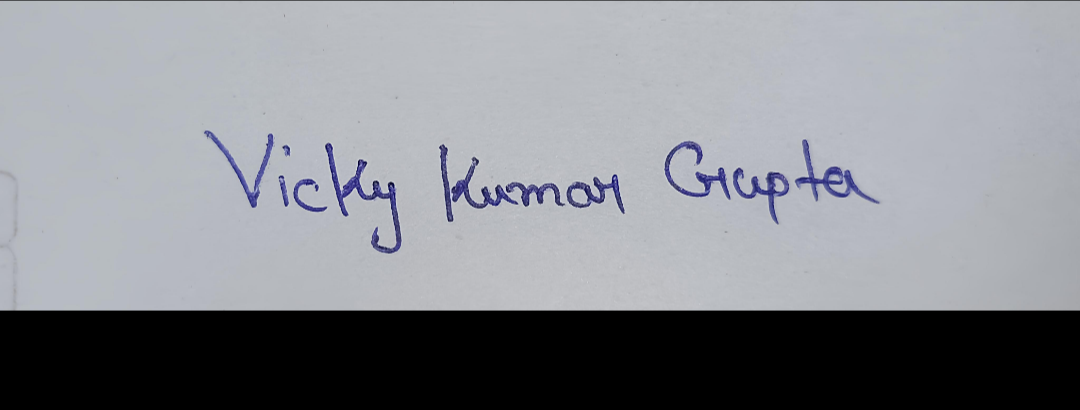 Vicky Kumar Gupta